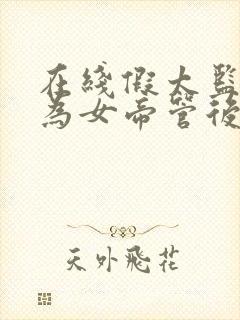 在綫假太監
為女帝管後
天外飛花